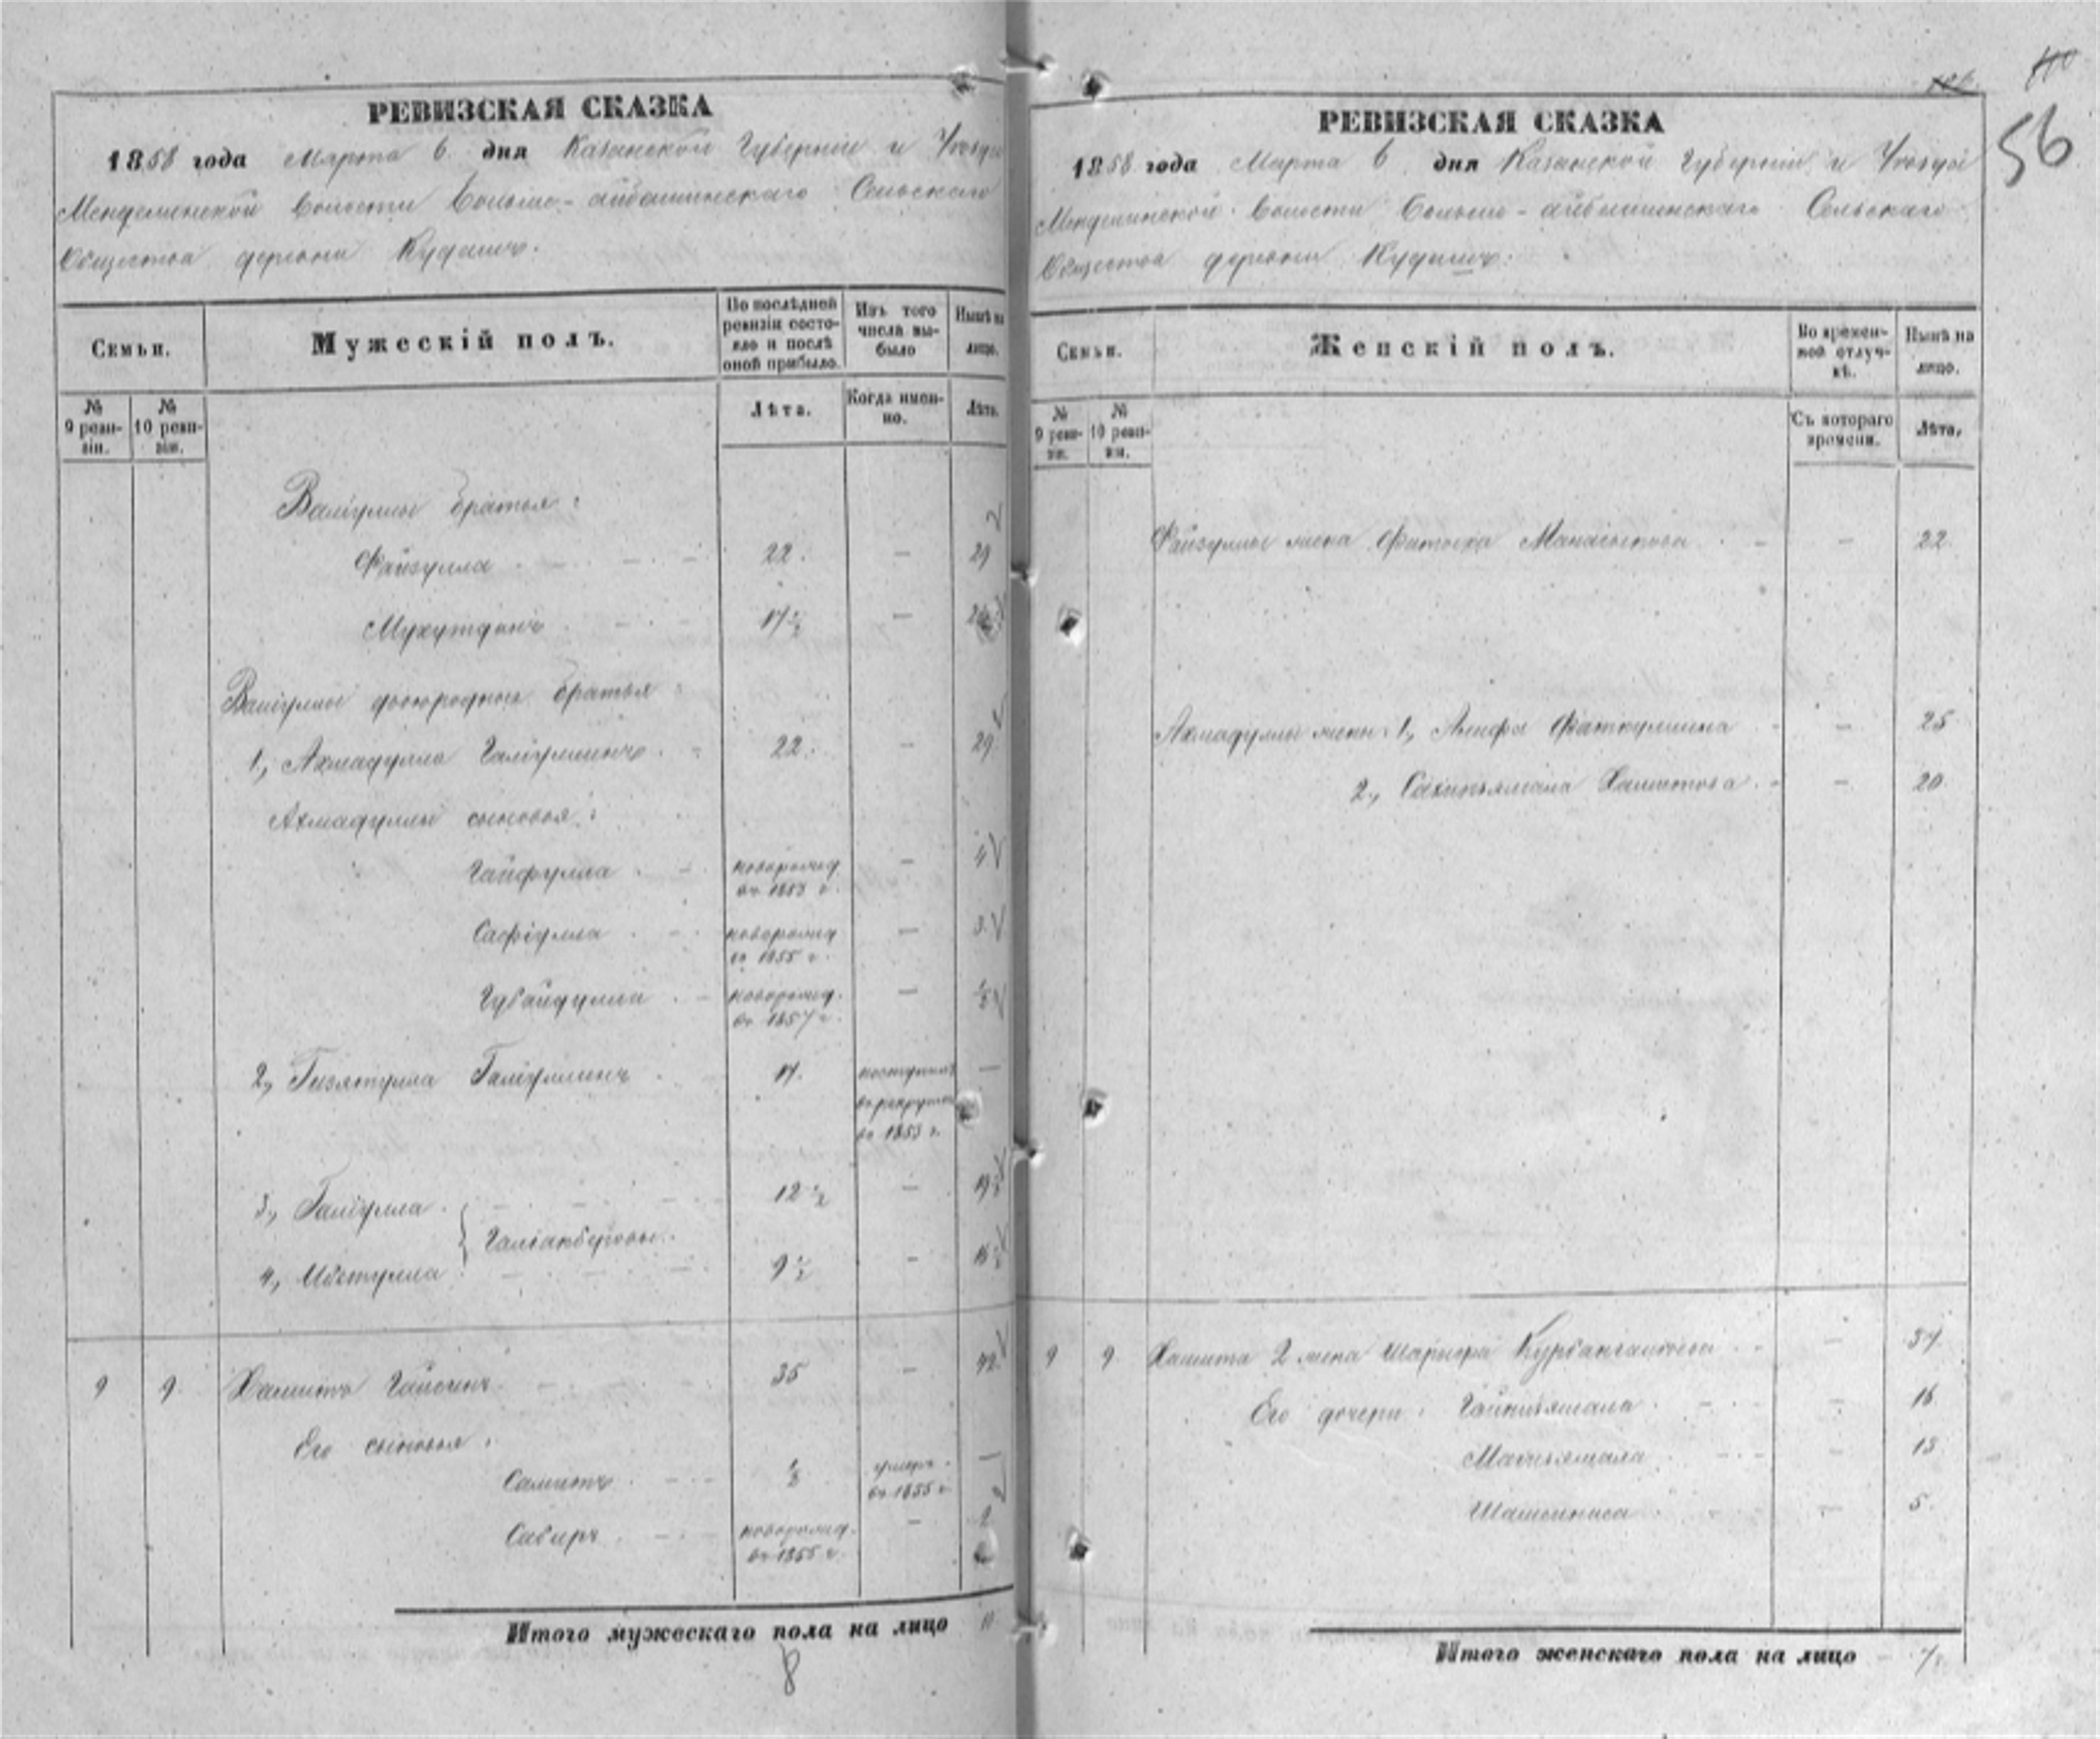 56
РЕВИЗСКАЯ СКАЗКА
1858 года Марта 6 дня Казанской Губерніи и Уѣзда
Менделинской Волости Больше-айбашинскаго Сельскаго
Общества деревни Кудашъ.
Семьи.
Мужескій полъ.
По послѣдней ревизіи состояло и послѣ оной прибыло.
Изъ того числа выбыло
Нынѣ на лицо.
№ 9 ревизіи.
№ 10 ревизіи.
Лѣта.
Когда именно.
Лѣта.
Валіуллы братья:
Файзулла 22. — 29
Мухутдинъ 17 ½ —
Валіуллы двоюродные братья:
1, Ахмадулла Галіуллинъ 22. — 29
Ахмадуллы сыновья:
Гайфулла новорожд. въ 1853 г. — 4
Сафіулла новорожд. въ 1855 г. — 3
Губайдулла новорожд. въ 1857 г. — ½
2, Гизятулла Галіуллинъ 17. поступилъ въ рекруты въ 1853 г. —
3, Галіулла 12 ½ — 19 ½
Галіакберовы
4, Ибятулла 9 ½ — 16 ½
9 9 Хамитъ Гайсинъ 35 — 42
Его сыновья:
Самитъ ½ умеръ въ 1855 г. —
Сабиръ новорожд. въ 1855 г. — 2
Итого мужескаго пола на лицо
8
РЕВИЗСКАЯ СКАЗКА
1858 года Марта 6 дня Казанской Губерніи и Уѣзда
Менделинской Волости Больше-айбашинскаго Сельскаго
Общества деревни Кудашъ.
Семьи.
Женскій полъ.
Во временной отлучкѣ.
Нынѣ на лицо.
№ 9 ревизіи.
№ 10 ревизіи.
Съ котораго времени.
Лѣта.
Файзуллы жена Фатыха — 22
Ахмадуллы жены: 1, Фаткуллина — 25
2, Хамитова — 20
9 9 Хамита 2 жена Шарифа Курбангалиева — 37
Его дочери: — 16
— 13
— 5.
Итого женскаго пола на лицо 7